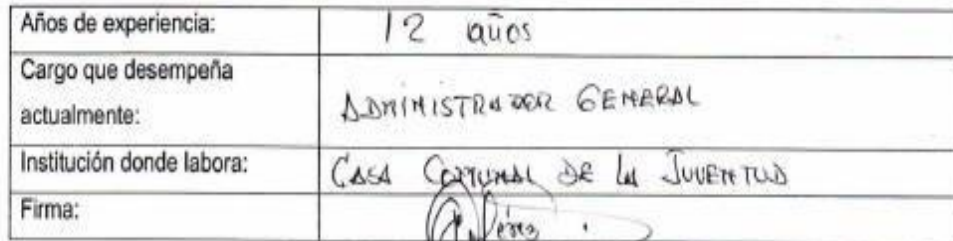 Años de experiencia: 12 años
Cargo que desempeña
actualmente: ADMINISTRADOR GENERAL
Institución donde labora: CASA COMUNAL DE LA JUVENTUD
Firma: